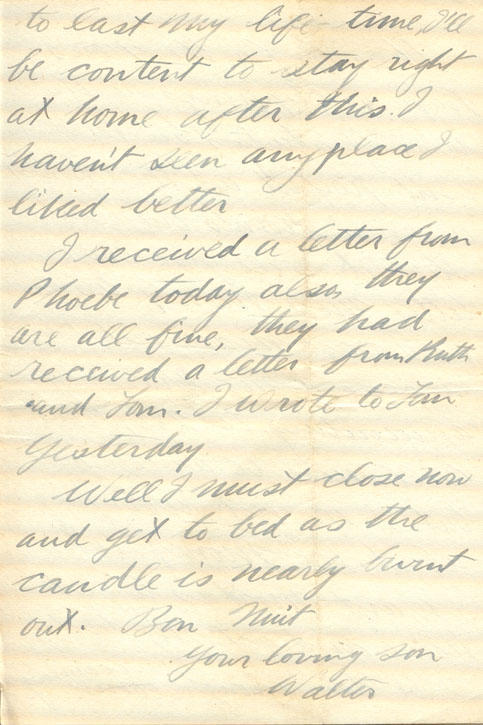 to last my life-time, I'll
be content to stay right
at home after this. I
haven't seen any place I
liked better
I received a letter from
Phoebe today also, they
are all fine, they had
received a letter from Ruth
and Tom. I wrote to Tom
yesterday.
Well I must close now
and get to bed as the
candle is nearly burnt
out. Bon Nuit
Your loving son
Walter